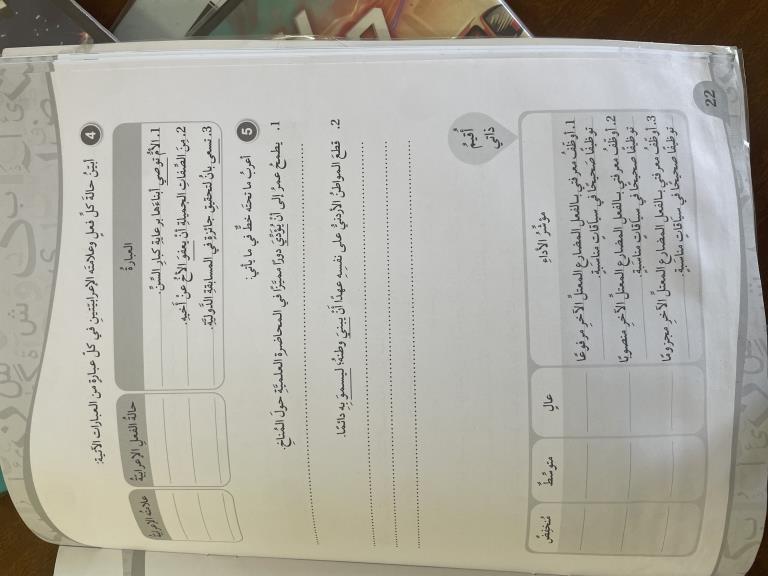 4 أبيّنُ حالةَ كلِّ فعلٍ وعلامتَه الإعرابيّتينِ في كلِّ عبارةٍ من العباراتِ الآتيةِ:
العبارةُ
حالةُ الفعلِ الإعرابيّةُ
علامتُ الإعرابيّةُ
1. الأمُّ توصي أبناءَها برعايةِ كبارِ السّنِّ.
2. مِنَ الصّفاتِ الجميلةِ أنْ يعفوَ الأخُ عنْ أخيهِ.
3. تسعى بانُ لتحقيقِ جائزةٍ في المسابقةِ الدّوليّةِ.
5 أعربُ ما تحتَه خطٌّ في ما يأتي:
1. يطمحُ عمرُ إلى أنْ يؤدّيَ دورًا مميّزًا في المحاضرةِ العلميّةِ حولَ المُناخِ.
2. قطعَ المواطنُ الأردنيُّ على نفسِه عهدًا أنْ يبنيَ وطنَهُ؛ ليسموَ بِه دائمًا.
أُقيّمُ
ذاتي
مؤشّرُ الأداءِ
عالٍ
متوسّطٌ
مُنخفِضٌ
1. أوظّفُ معرفتي بالفعلِ المضارعِ المعتلِّ الآخرِ مرفوعًا
توظيفًا صحيحًا في سياقاتٍ مناسبةٍ.
2. أوظّفُ معرفتي بالفعلِ المضارعِ المعتلِّ الآخرِ منصوبًا
توظيفًا صحيحًا في سياقاتٍ مناسبةٍ.
3. أوظّفُ معرفتي بالفعلِ المضارعِ المعتلِّ الآخرِ مجزومًا
توظيفًا صحيحًا في سياقاتٍ مناسبةٍ.
22